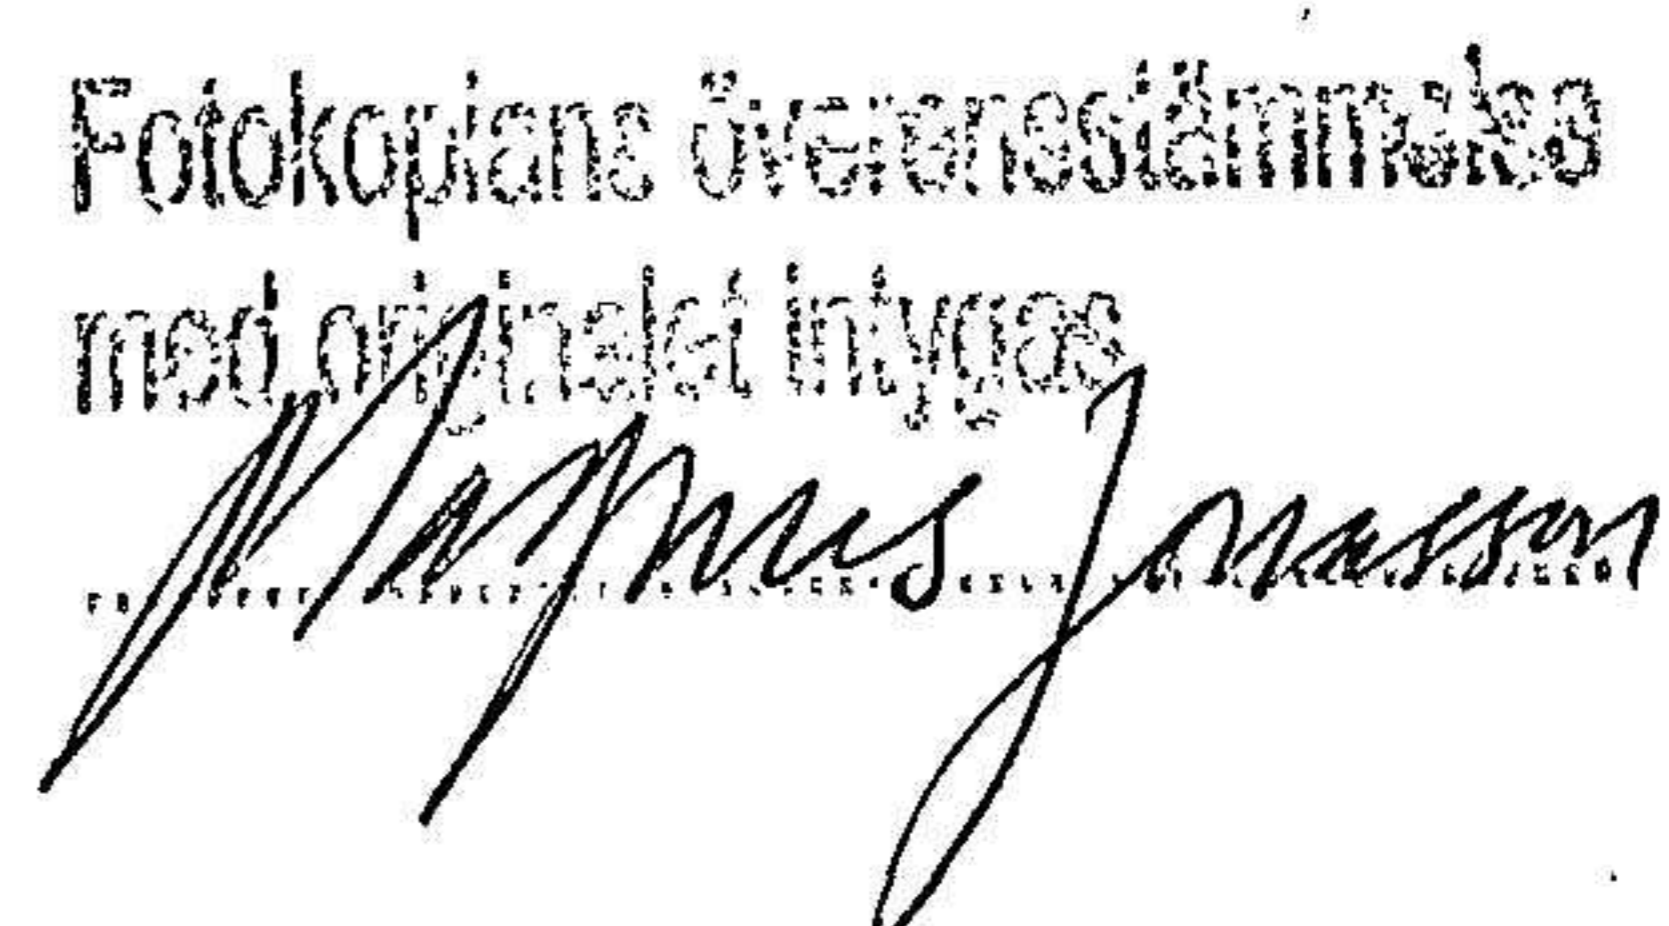 Fotokopians överensstämmelse
med originalet intygas
Magnus Jonasson